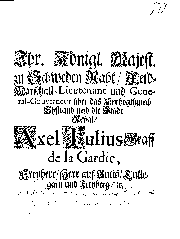 Ihr. Königl. Majest.
zu Schweden Raht/ Feld-
Marschall-Lieutenant und Gene-
ral-Gouverneur über das Hertzogthumb
Ehstland und die Stadt
Reval/
Axel Julius Graff
de la Gardie,
Freyherr/ Herr auff
und